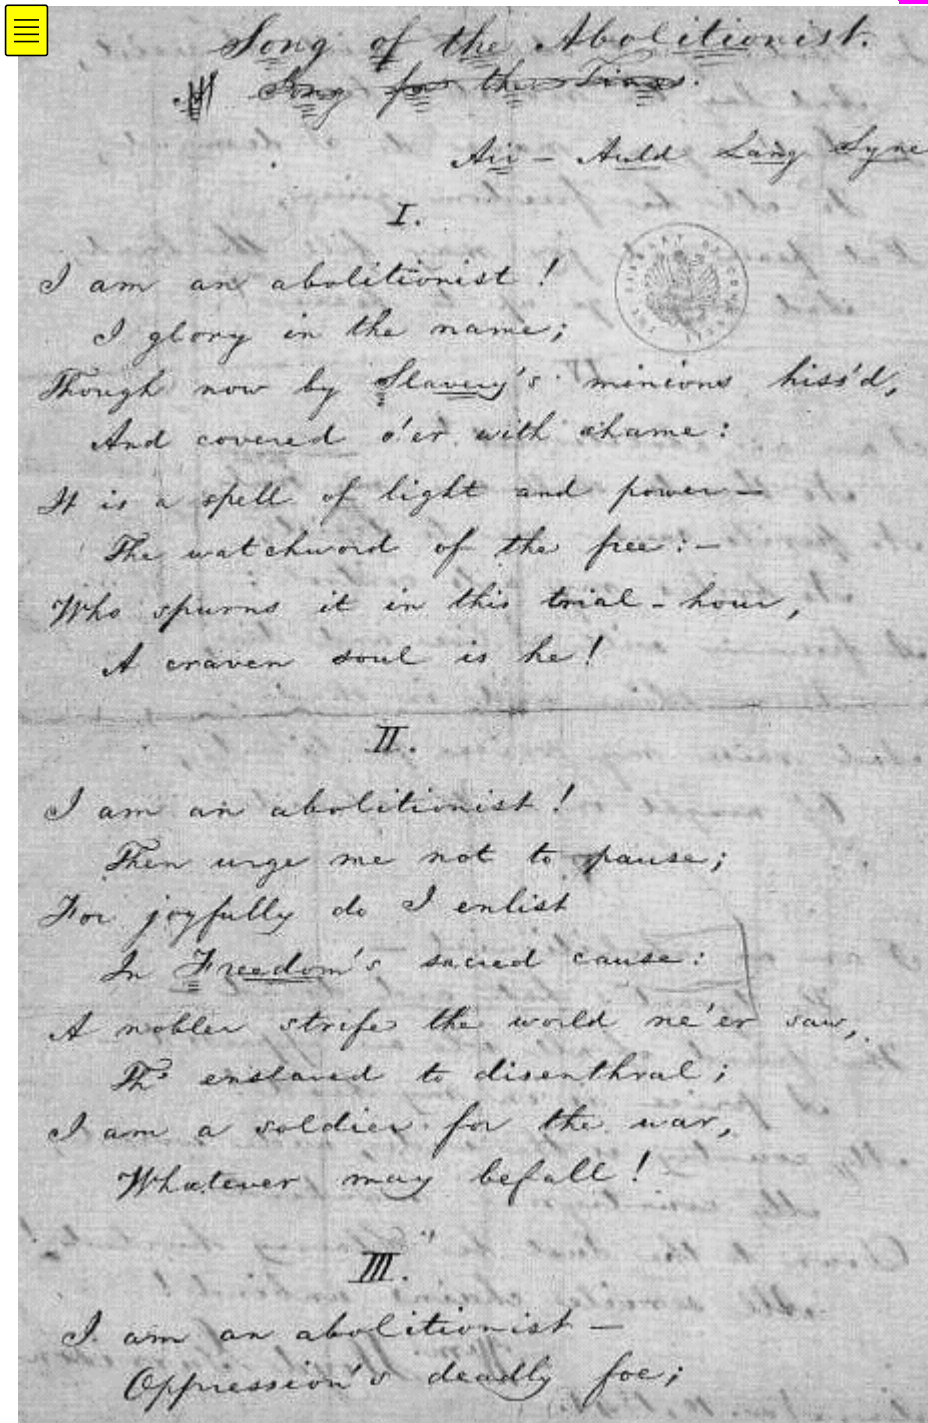 Song of the Abolitionist.
Song for the Times.
Air – Auld Lang Syne
I.
I am an abolitionist!
I glory in the name;
Though now by Slavery's minions hiss'd,
And covered o'er with shame:
It is a spell of light and power—
The watchword of the free:—
Who spurns it in this trial-hour,
A craven soul is he!
II.
I am an abolitionist!
Then urge me not to pause;
For joyfully do I enlist
In Freedom's sacred cause:
A nobler strife the world ne'er saw,
Th' enslaved to disenthral;
I am a soldier for the war,
Whatever may befall!
III.
I am an abolitionist—
Oppression's deadly foe;